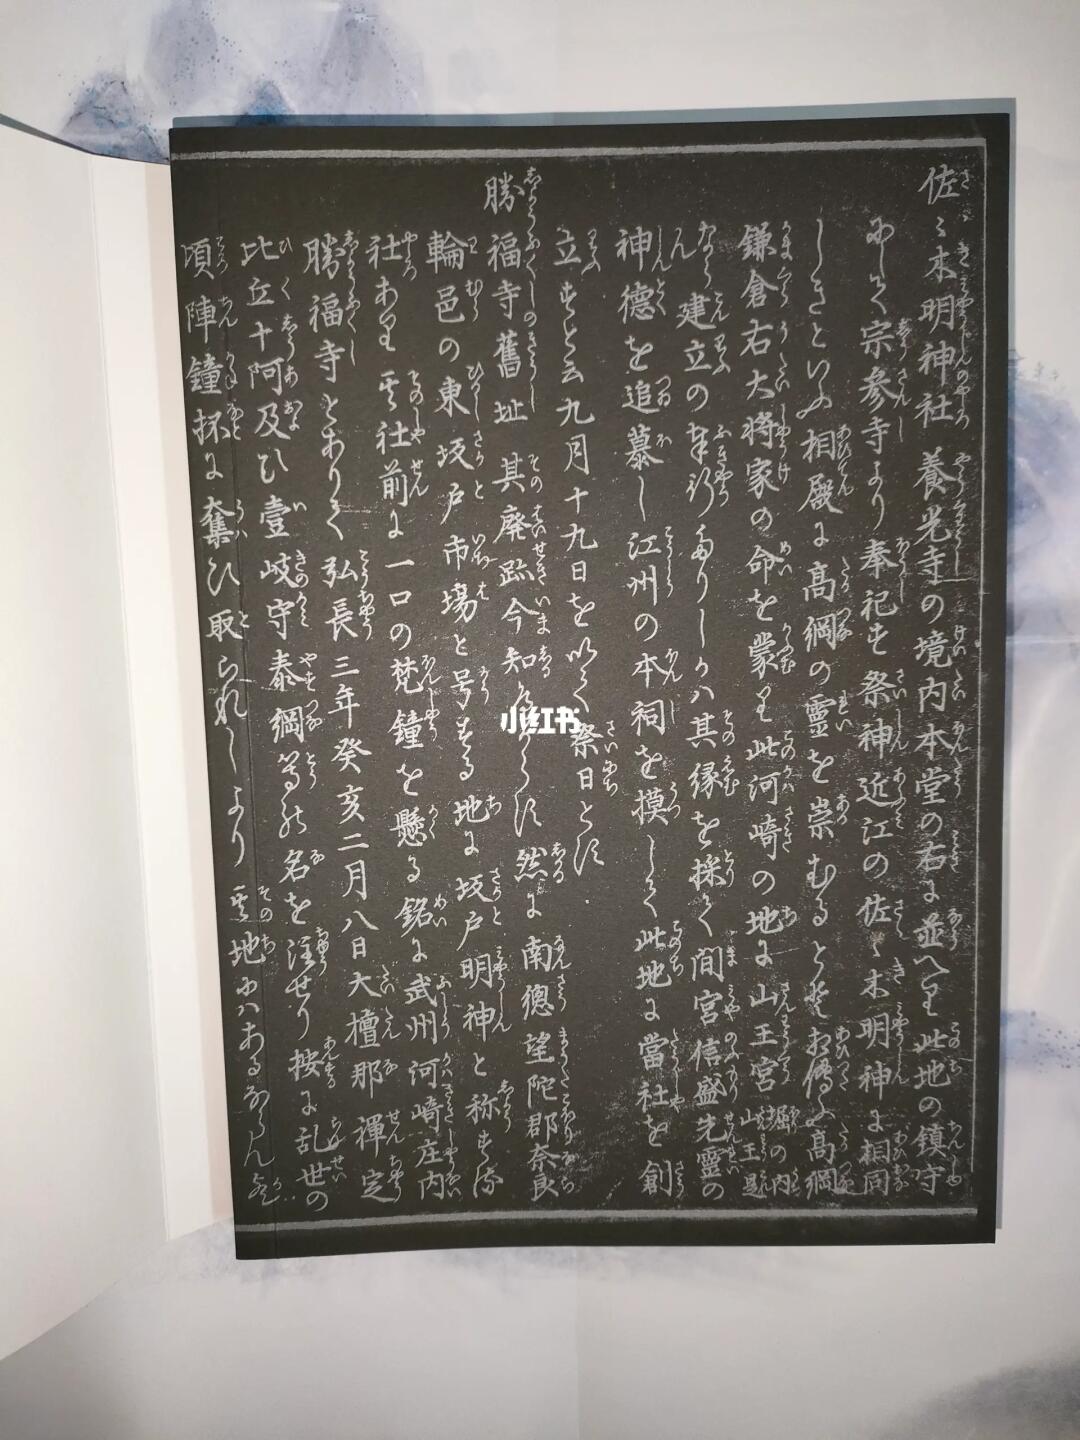 佐々木明神社 養光寺の境内本堂の右に並へり此地の鎮守
にして宗参寺より奉祀す祭神近江の佐々木明神に相同
しきといふ相殿に高綱の靈を崇むるとそ相傳ふ高綱
鎌倉右大将家の命を蒙り此河崎の地に山王宮 堀の内山王是
なり 建立の奉行たりしかハ其縁を採て間宮信盛先靈の
神德を追慕し江州の本祠を摸して此地に當社を創
立すと云九月十九日を以て祭日とす
勝福寺舊址 其廃跡今知へからす然に南總望陀郡奈良
輪邑の東坂戸市場と号する地に坂戸明神と称する
社あり其社前に一口の梵鐘を懸る銘に武州河崎庄内
勝福寺とありて弘長三年癸亥二月八日大檀那禪定
比丘十阿及ひ壹岐守泰綱等の名を注せり按に乱世の
頃陣鐘抔に奪ひ取られしより其地にハあるならん歟
小红书